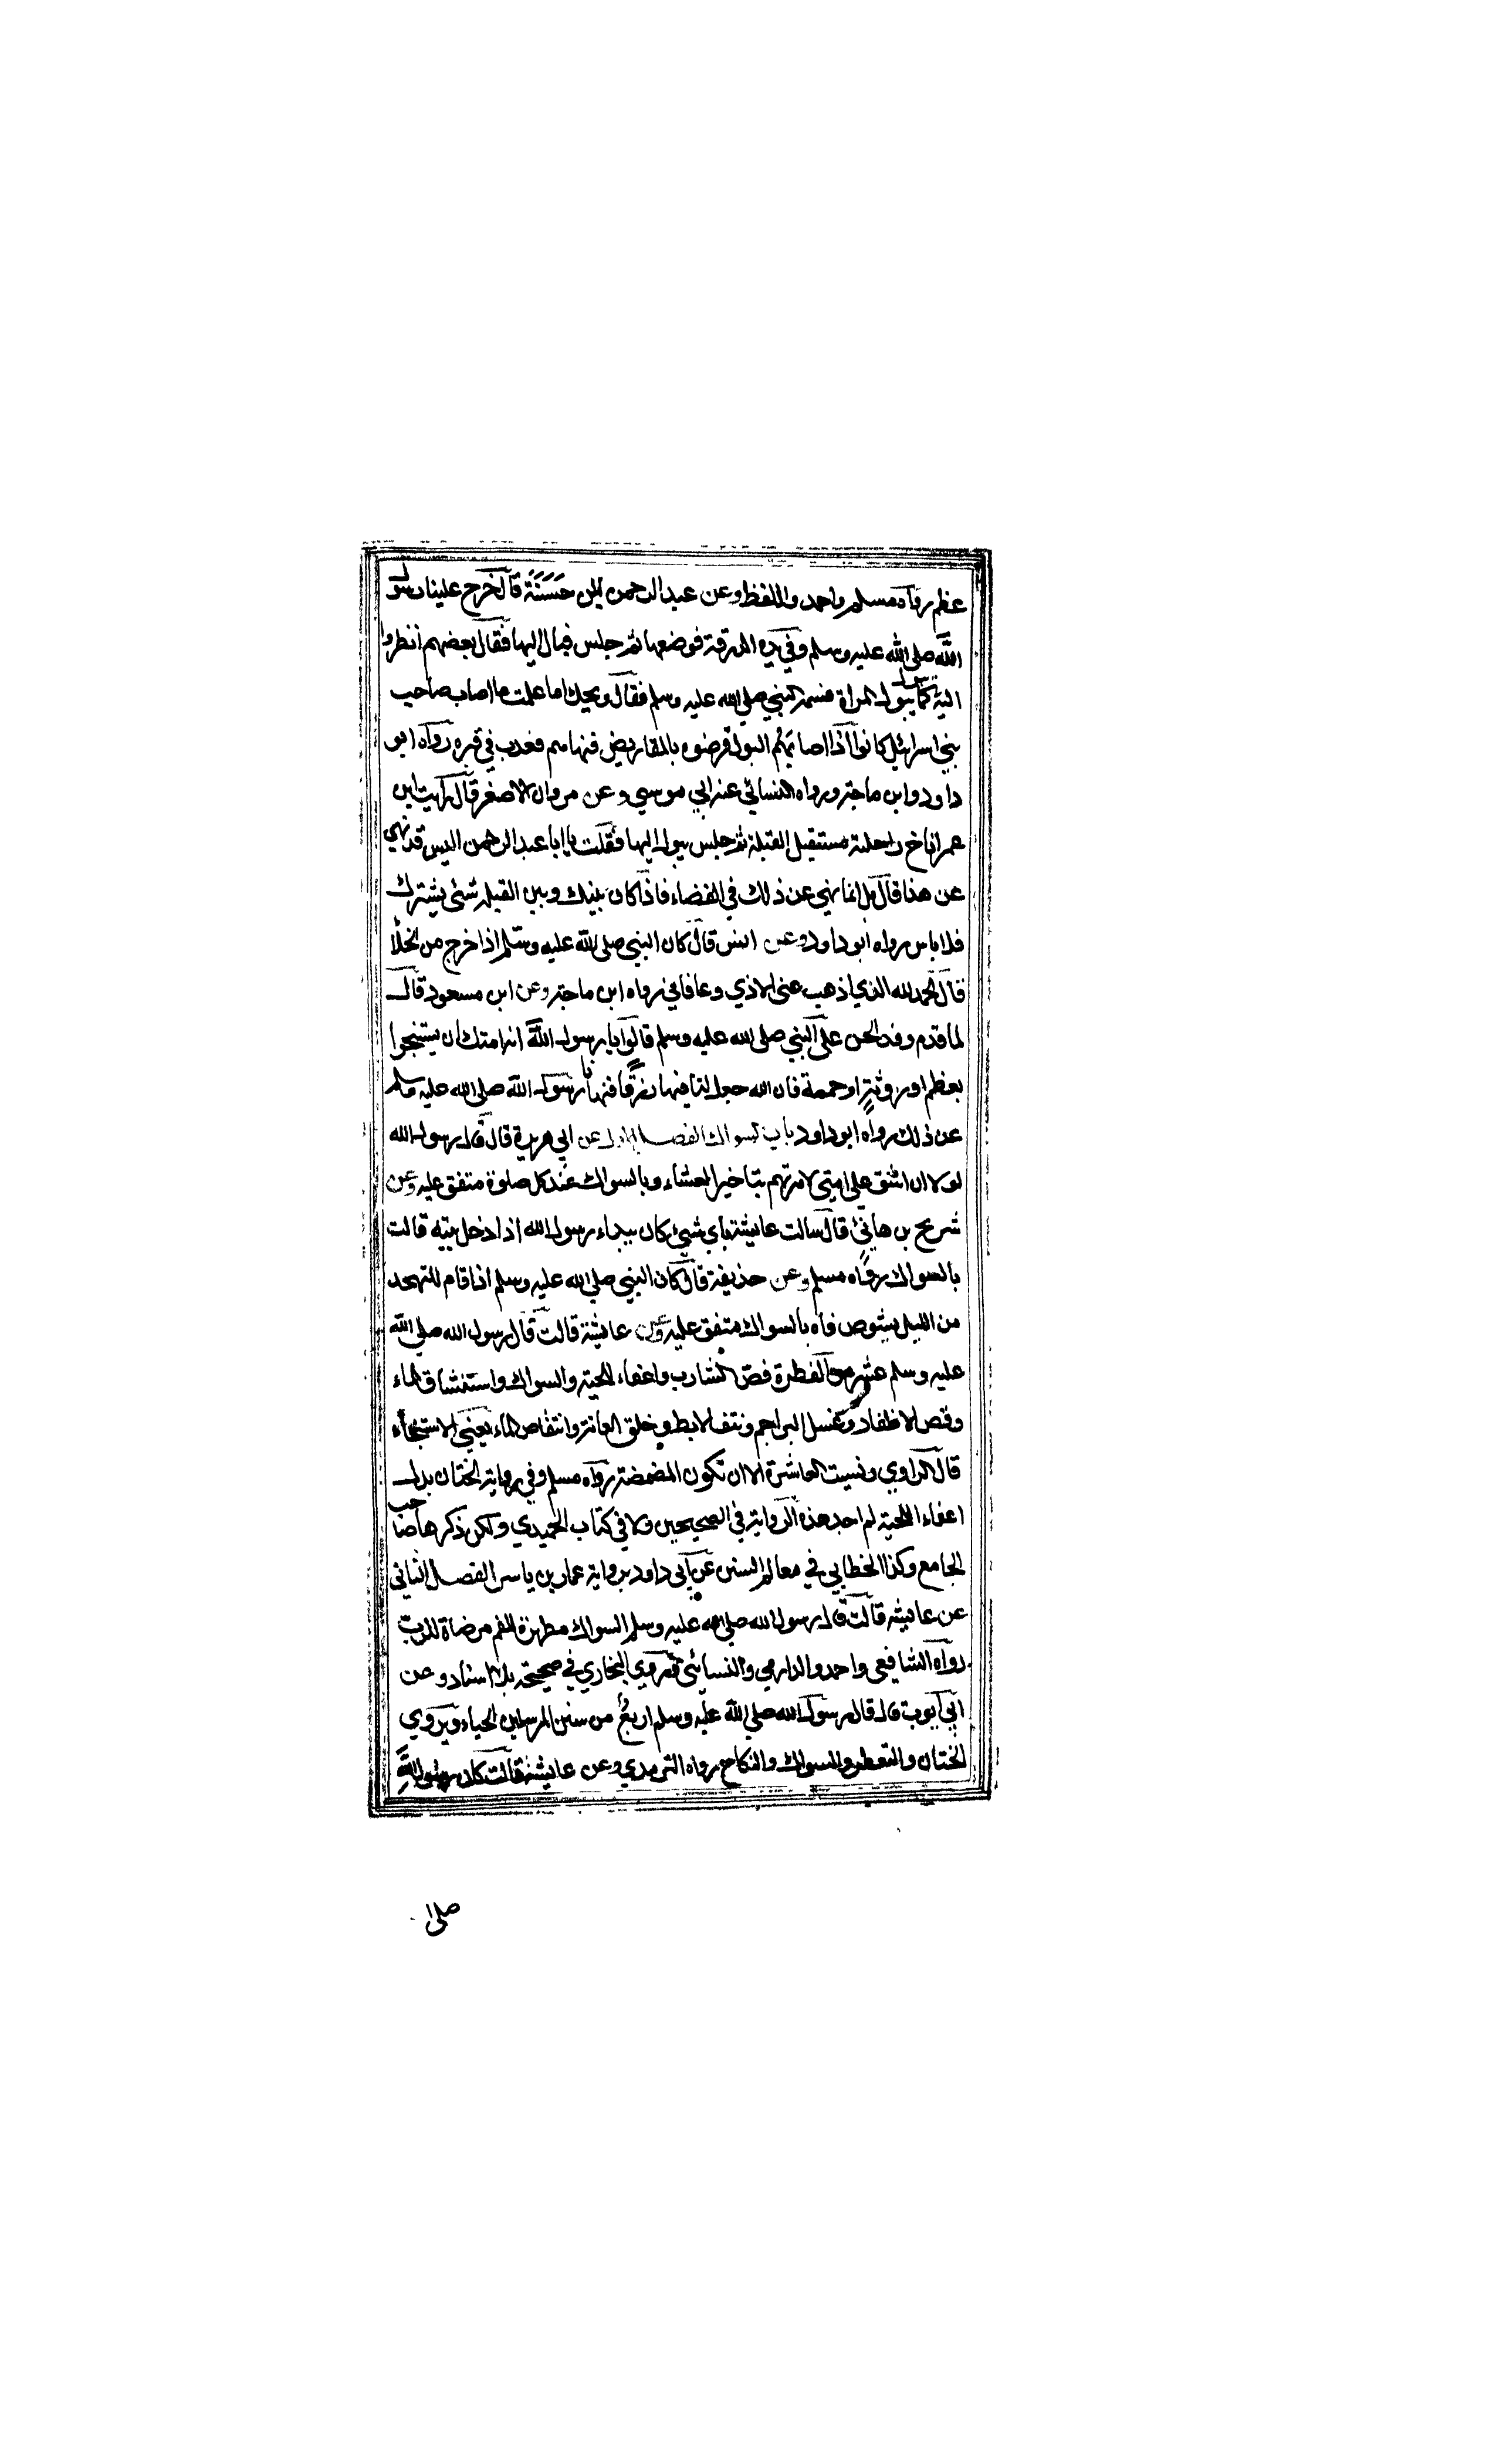 عظم رواه مسلم واحمد واللفظ وعن عبد الرحمن ابن حَسَنَةَ قال خرج علينا رسول
الله صلي الله عليه وسلم وفي يده الدرقة فوضعها ثم جلس فبال اليها فقال بعضهم انظروا
اليه يبول كما تبول المراة فسمعه النبي صلي الله عليه وسلم فقال ويحك اما علمت ما اصاب صاحب
بني اسرائيل كانوا اذا اصابهم البول قرضوه بالمقاريض فنهاهم فعذب في قبره رواه ابو
داود وابن ماجة ورواه النسائي عنه ابي موسي وعن مروان الاصغر قال رايت ابن
عمر اناخ راحلته مستقبل القبلة ثم جلس يبول اليها فقلت يا ابا عبد الرحمن اليس قد نهي
عن هذا قال بل انما نهي عن ذلك في الفضاء فاذا كان بينك وبين القبلة شئ يشترك
فلا باس رواه ابو داود وعن انس قال كان النبي صلي الله عليه وسلم اذا خرج من الخلا
قال الحمد لله الذي اذهب عني الاذي وعافاني رواه ابن ماجة وعن ابن مسعود قال
لما قدم وفد الجن علي النبي صلي الله عليه وسلم قالوا يا رسول الله انه امتك ان يستنجوا
بعظم او روثةٍ او حممة فان الله جعل لنا فيها رزقًا فنهانا رسول الله صلي الله عليه وسلم
عن ذلك رواه ابو داود باب السواك الفصل الاول عن ابي هريرة قال قال رسول الله
لولا ان اشق علي امتي لامرتهم بتاخير العشاء وبالسواك عند كل صلوة متفق عليه وعن
شريح بن هانئ قال سالت عايشة باي شيئ كان يبداء رسول الله اذا دخل بيته قالت
بالسواك رواه مسلم وعن حذيفة قال كان النبي صلي الله عليه وسلم اذا قام للتهجد
من الليل يشوص فاه بالسواك متفق عليه وعن عايشة قالت قال رسول الله صلي الله
عليه وسلم عشر من الفطرة قص الشارب واعفاء اللحية والسواك واستنشاق الماء
وقص الاظفار وغسل البراجم ونتف الابط وحلق العانة وانتقاص الماء يعني الاستنجاء
قال الراوي ونسيت العاشرة الا ان تكون المضمضة رواه مسلم وفي رواية الختان بدل
اعفاء اللحية لم اجد هذه الرواية في الصحيحين ولا في كتاب الحميدي ولكن ذكرها صاحب
الجامع وكذا الخطابي في معالم السنن عن ابي داود برواية عمار بن ياسر الفصل الثاني
عن عايشة قالت قال رسول الله صلي الله عليه وسلم السواك مطهرة للفم مرضاة للرب
رواه الشافعي واحمد والدارمي والنسائي وروي البخاري في صحيحه بلا اسناد وعن
ابي ايوب قال قال رسول الله صلي الله عليه وسلم اربعٌ من سنن المرسلين الحياء ويروي
الختان والتعطر والسواك والنكاح رواه الترمذي وعن عايشة قالت كان رسول اللهِ
صلي